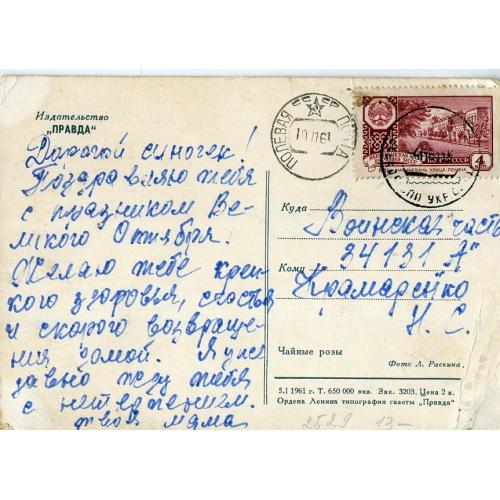 Издательство
„ПРАВДА"
Дорогой сыночек!
Поздравляю тебя
с праздником Ве-
ликого Октября.
Желаю тебе креп-
кого здоровья, счастья
и скорого возвраще-
ния домой. Я уже
давно жду тебя
с нетерпением.
твоя мама
ПОЛЕВАЯ ПОЧТА
СССР
4
НАХИЧЕВАНЬ. УЛИЦА ЛЕНИНА
Куда Воинская часть
34131 „А"
Кому Крамаренко
Н. С.
Чайные розы
Фото Л. Раскина.
5.I 1961 г. Т. 650 000 экз. Зак. 3203. Цена 2 к.
Ордена Ленина типография газеты „Правда"
2529 13-